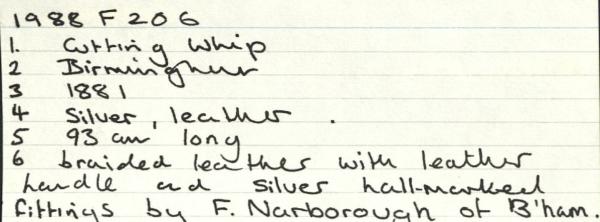 1988 F 206
1. Cutting Whip
2 Birmingham
3 1881
4 Silver, leather .
5 93 cm long
6 braided leather with leather
handle and silver hall-marked
fittings by F. Narborough of B'ham.